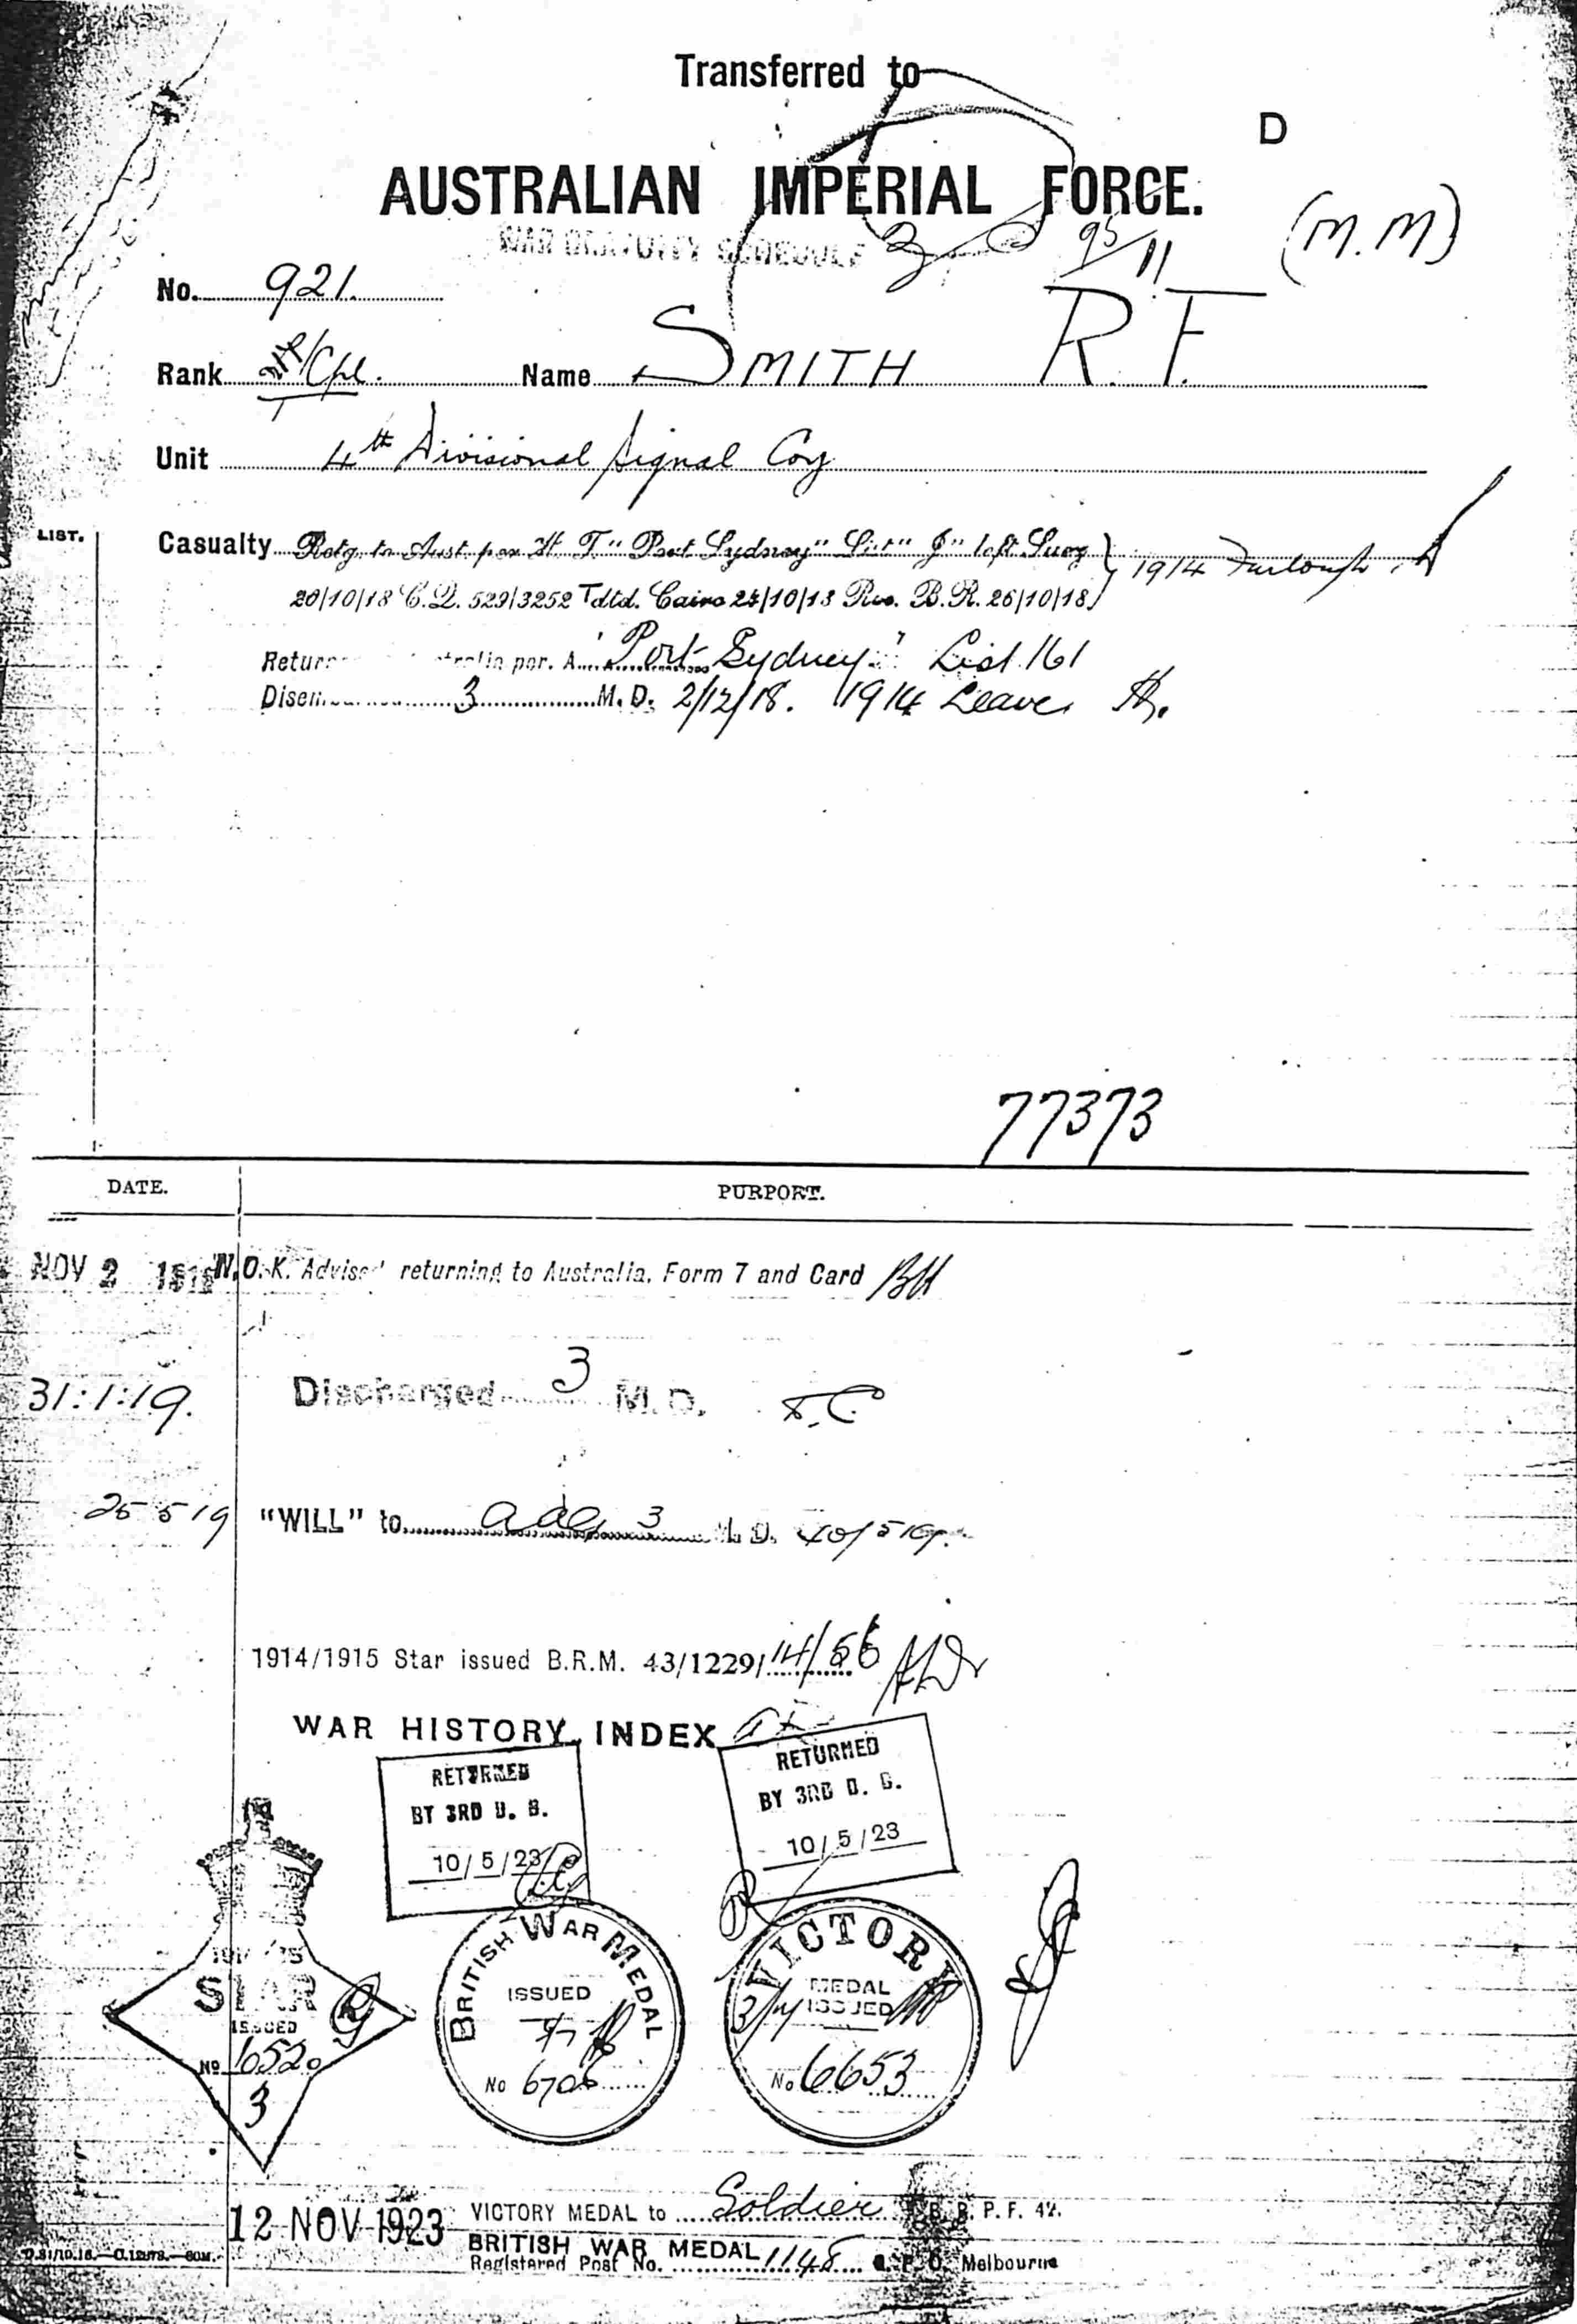 Transferred to
D
AUSTRALIAN IMPERIAL FORCE.
WAR GRATUITY SCHEDULE
95/11
(M.M)
No. 921.
Rank Cpl. Name SMITH R.F.
Unit 4th Divisional Signal Coy
LIST.
Casualty Retg. to Aust. per H. T. "Port Sydney" List "J" left Suez } 1914 Furlough
20/10/18 C.D. 529/3252 Tdtd. Cairo 24/10/18 Rec. B.R. 26/10/18
per. "Port Sydney" List 161
3 M.D. 2/12/18. 1914 Leave
77373
DATE. PURPORT.
NOV 2 N.O.K. Advised returning to Australia. Form 7 and Card BH
31:1:19. Discharged 3 M.D.
25 5 19 "WILL" to 3 M.D.
1914/1915 Star issued B.R.M. 43/1229/14/56
WAR HISTORY INDEX
RETURNED
BY 3RD
10/5/23
RETURNED
BY 3RD
10/5/23
STAR
ISSUED
No 10520
3
BRITISH WAR MEDAL
ISSUED
No 6706
VICTORY
MEDAL
ISSUED
No 6653
12 NOV 1923 VICTORY MEDAL to Soldier B. R. P. F. 42.
BRITISH WAR MEDAL
Registered Post No. 1148 G. P. O. Melbourne